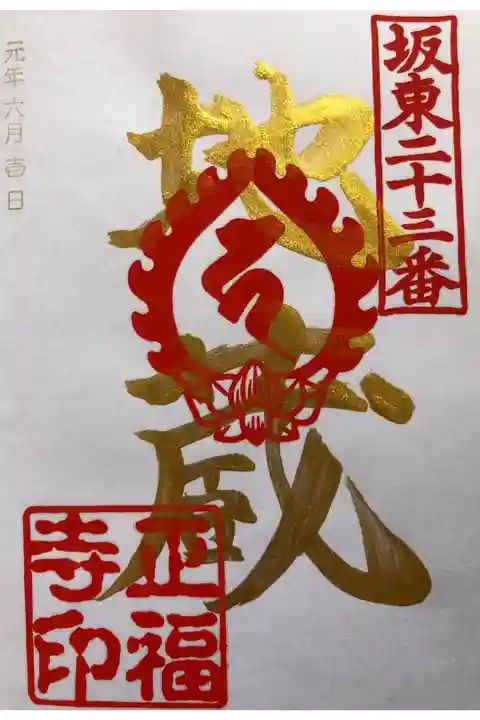 坂東二十三番
地蔵
正福
寺印
元年六月壱日